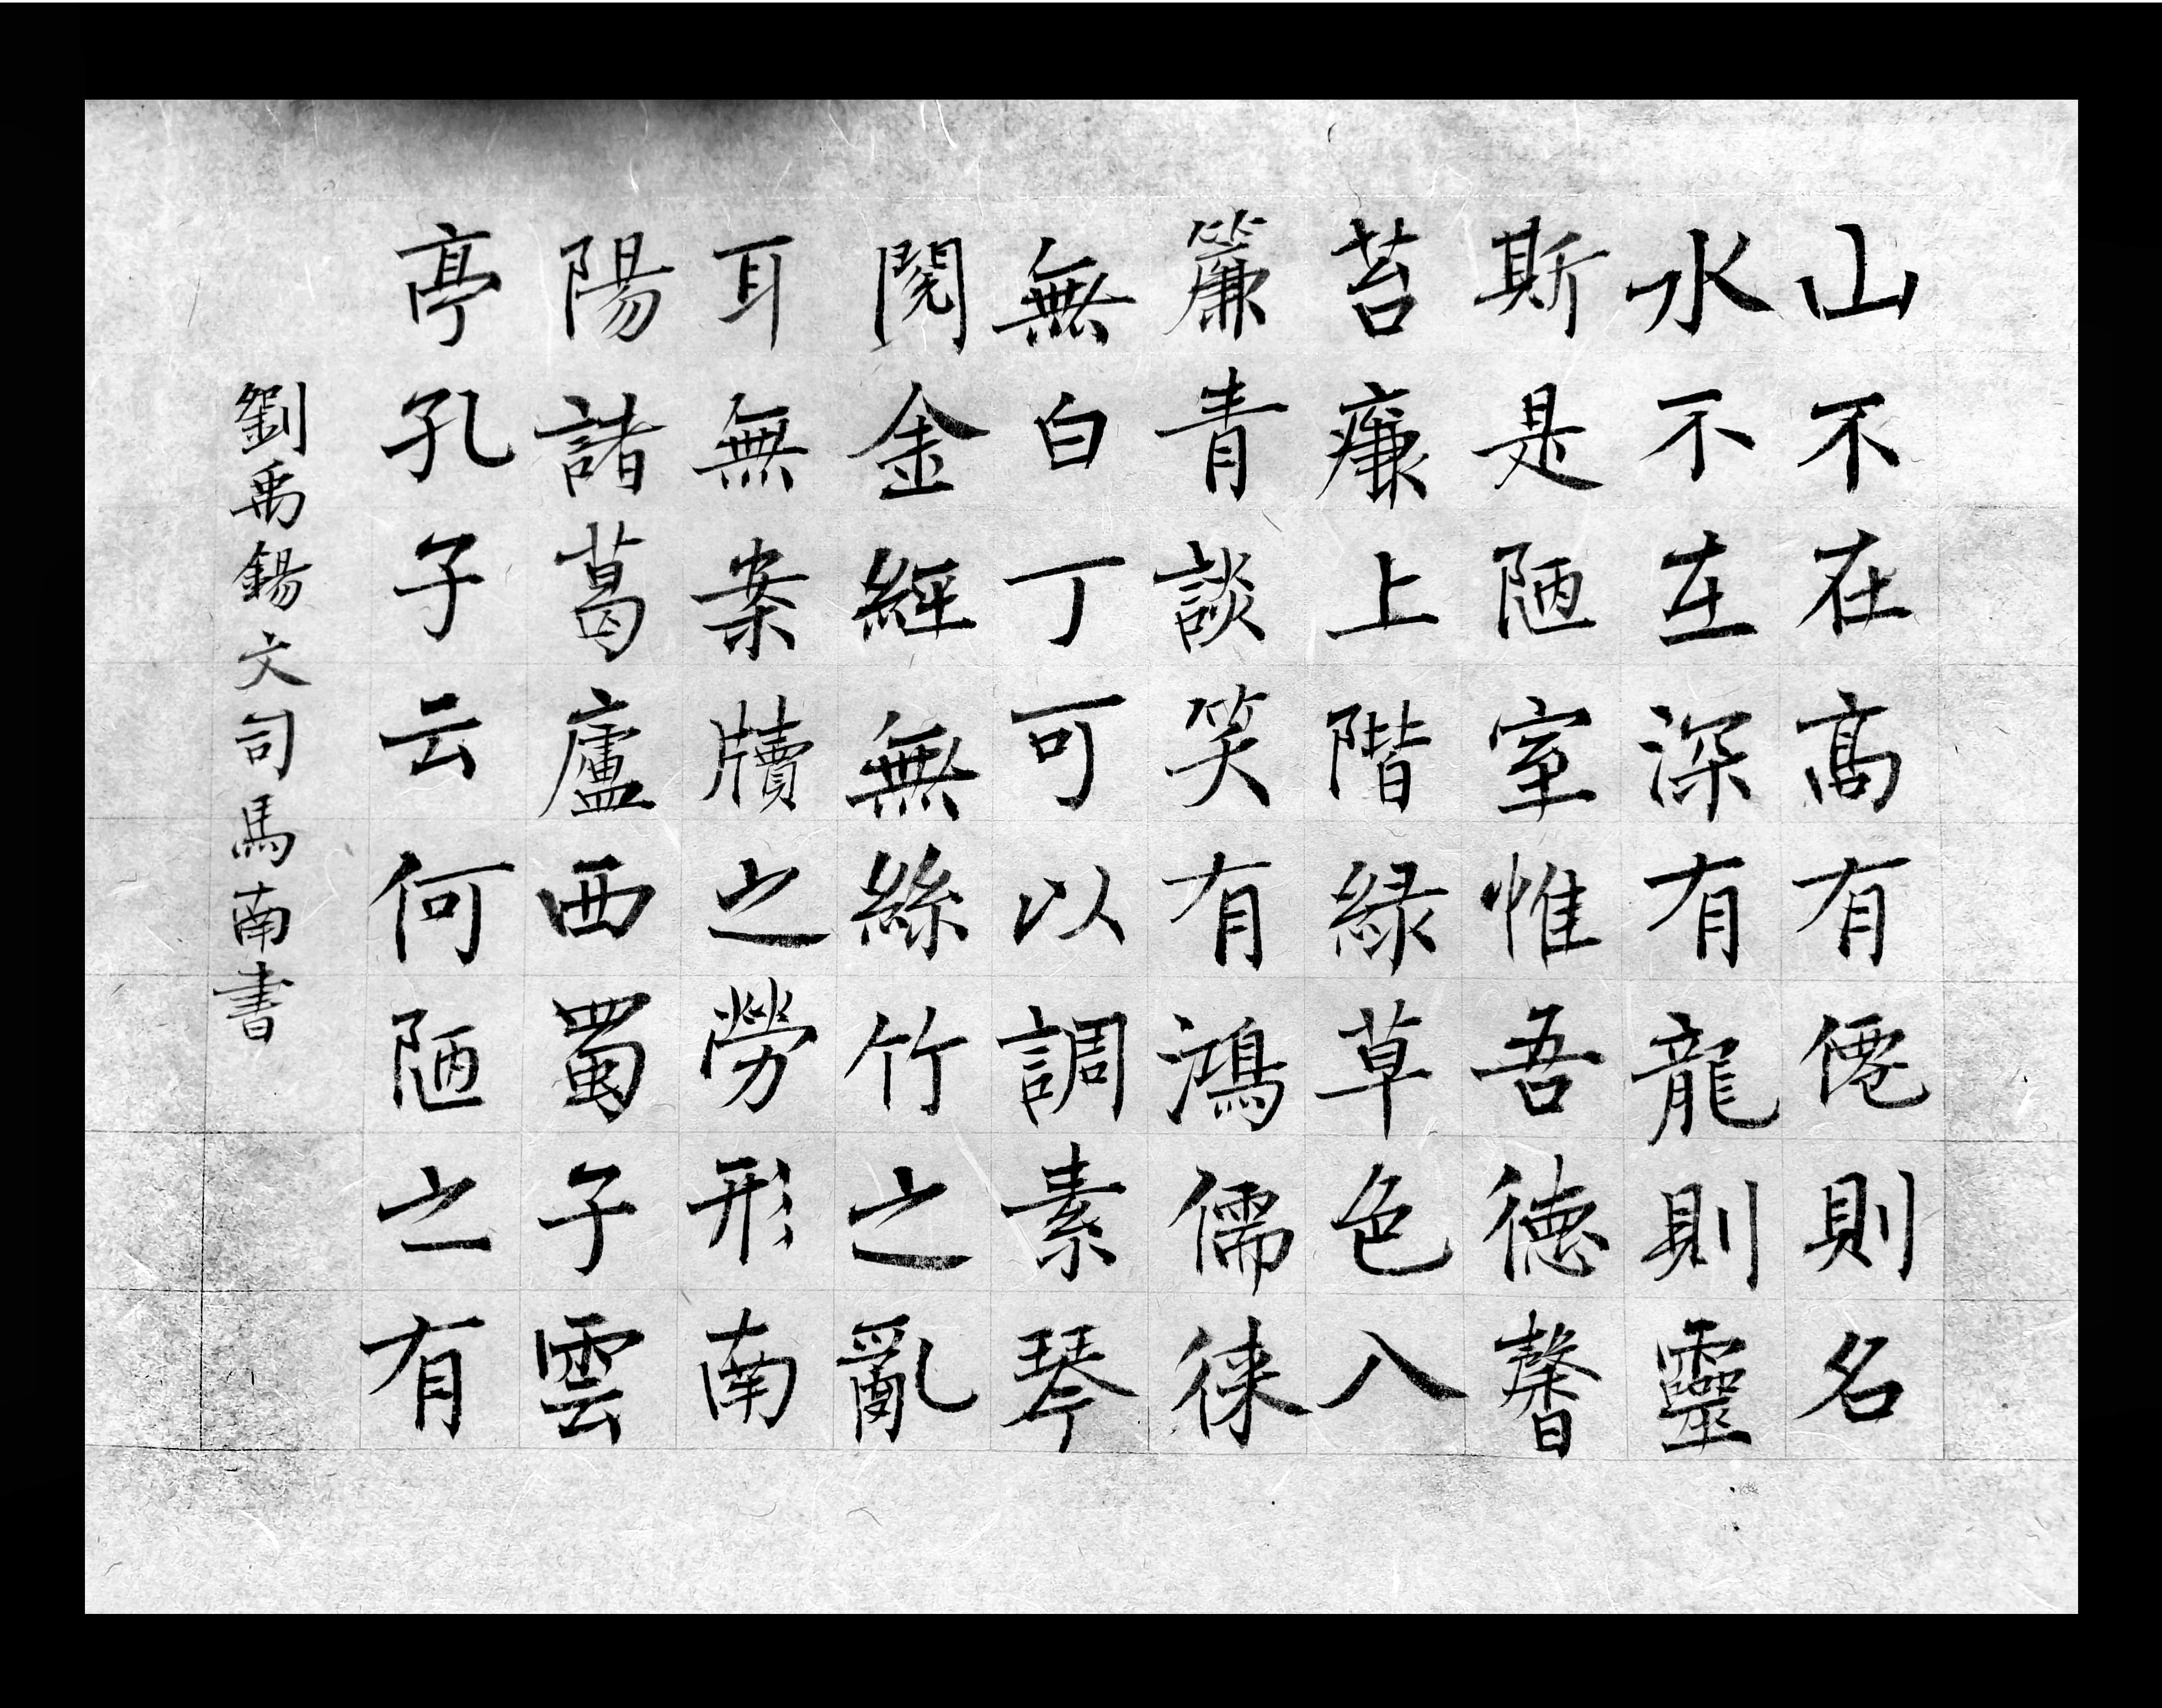 山不在高有僊則名
水不在深有龍則靈
斯是陋室惟吾德馨
苔痕上階緑草色入
簾青談笑有鴻儒徠
無白丁可以調素琴
閱金經無絲竹之亂
耳無案牘之勞形南
陽諸葛廬西蜀子雲
亭孔子云何陋之有
劉禹錫文司馬南書